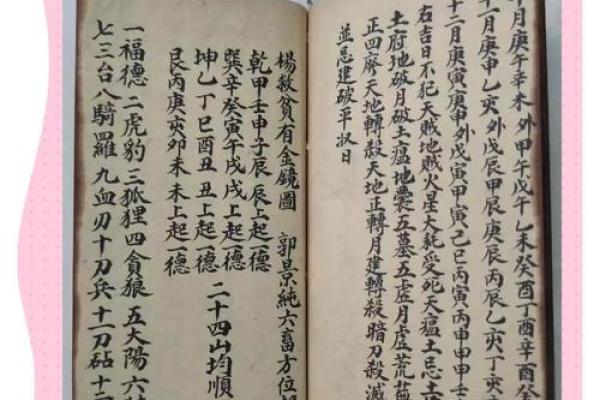 十月庚午辛未外甲午戊午乙未癸酉丁酉辛酉
十一月庚申乙亥外戊辰甲辰庚辰丙辰乙亥丁亥
十二月庚寅庚申外戊寅甲寅己巳丙寅丙申甲申
右吉日不犯天賊地賊火星大耗受死天瘟土忌土
土府地破月破土瘟地囊五墓五虛月虛荒蕪
正四廢天地轉殺天地正轉月建轉殺暗刀殺滅
並忌建破平收日
楊救貧有金鏡圖 郭景純六畜方位
乾甲壬申子辰辰上起一德
巽辛癸寅午戌戌上起一德
坤乙丁巳酉丑丑上起一德
艮丙庚亥卯未未上起一德
二十四山均順
一福德二虎豹三狐狸四貪狼五大陽六
七三台八騎羅九血刃十刀兵十一刀砧十二